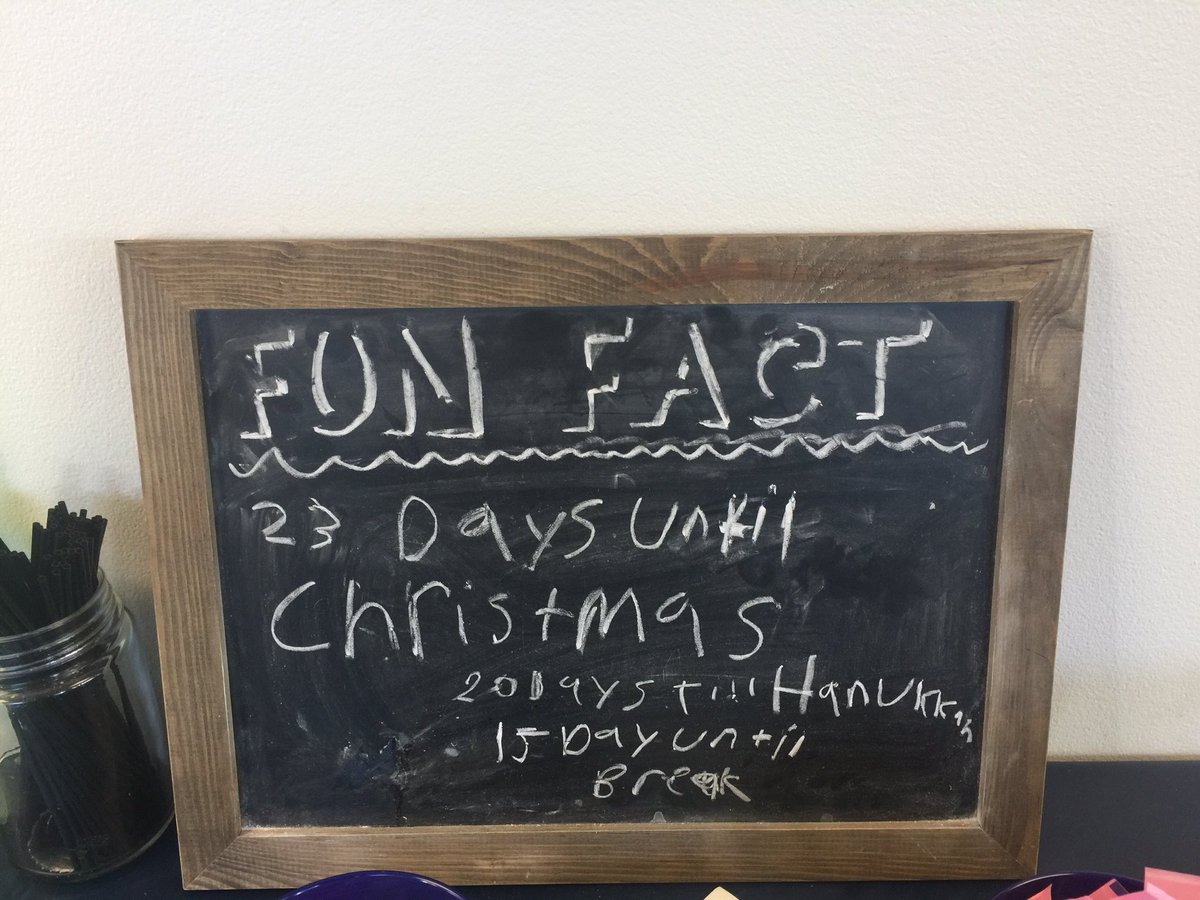 FUN FACT
23 Days Until
Christmas
20 Days till Hanukkah
15 Day until
Break